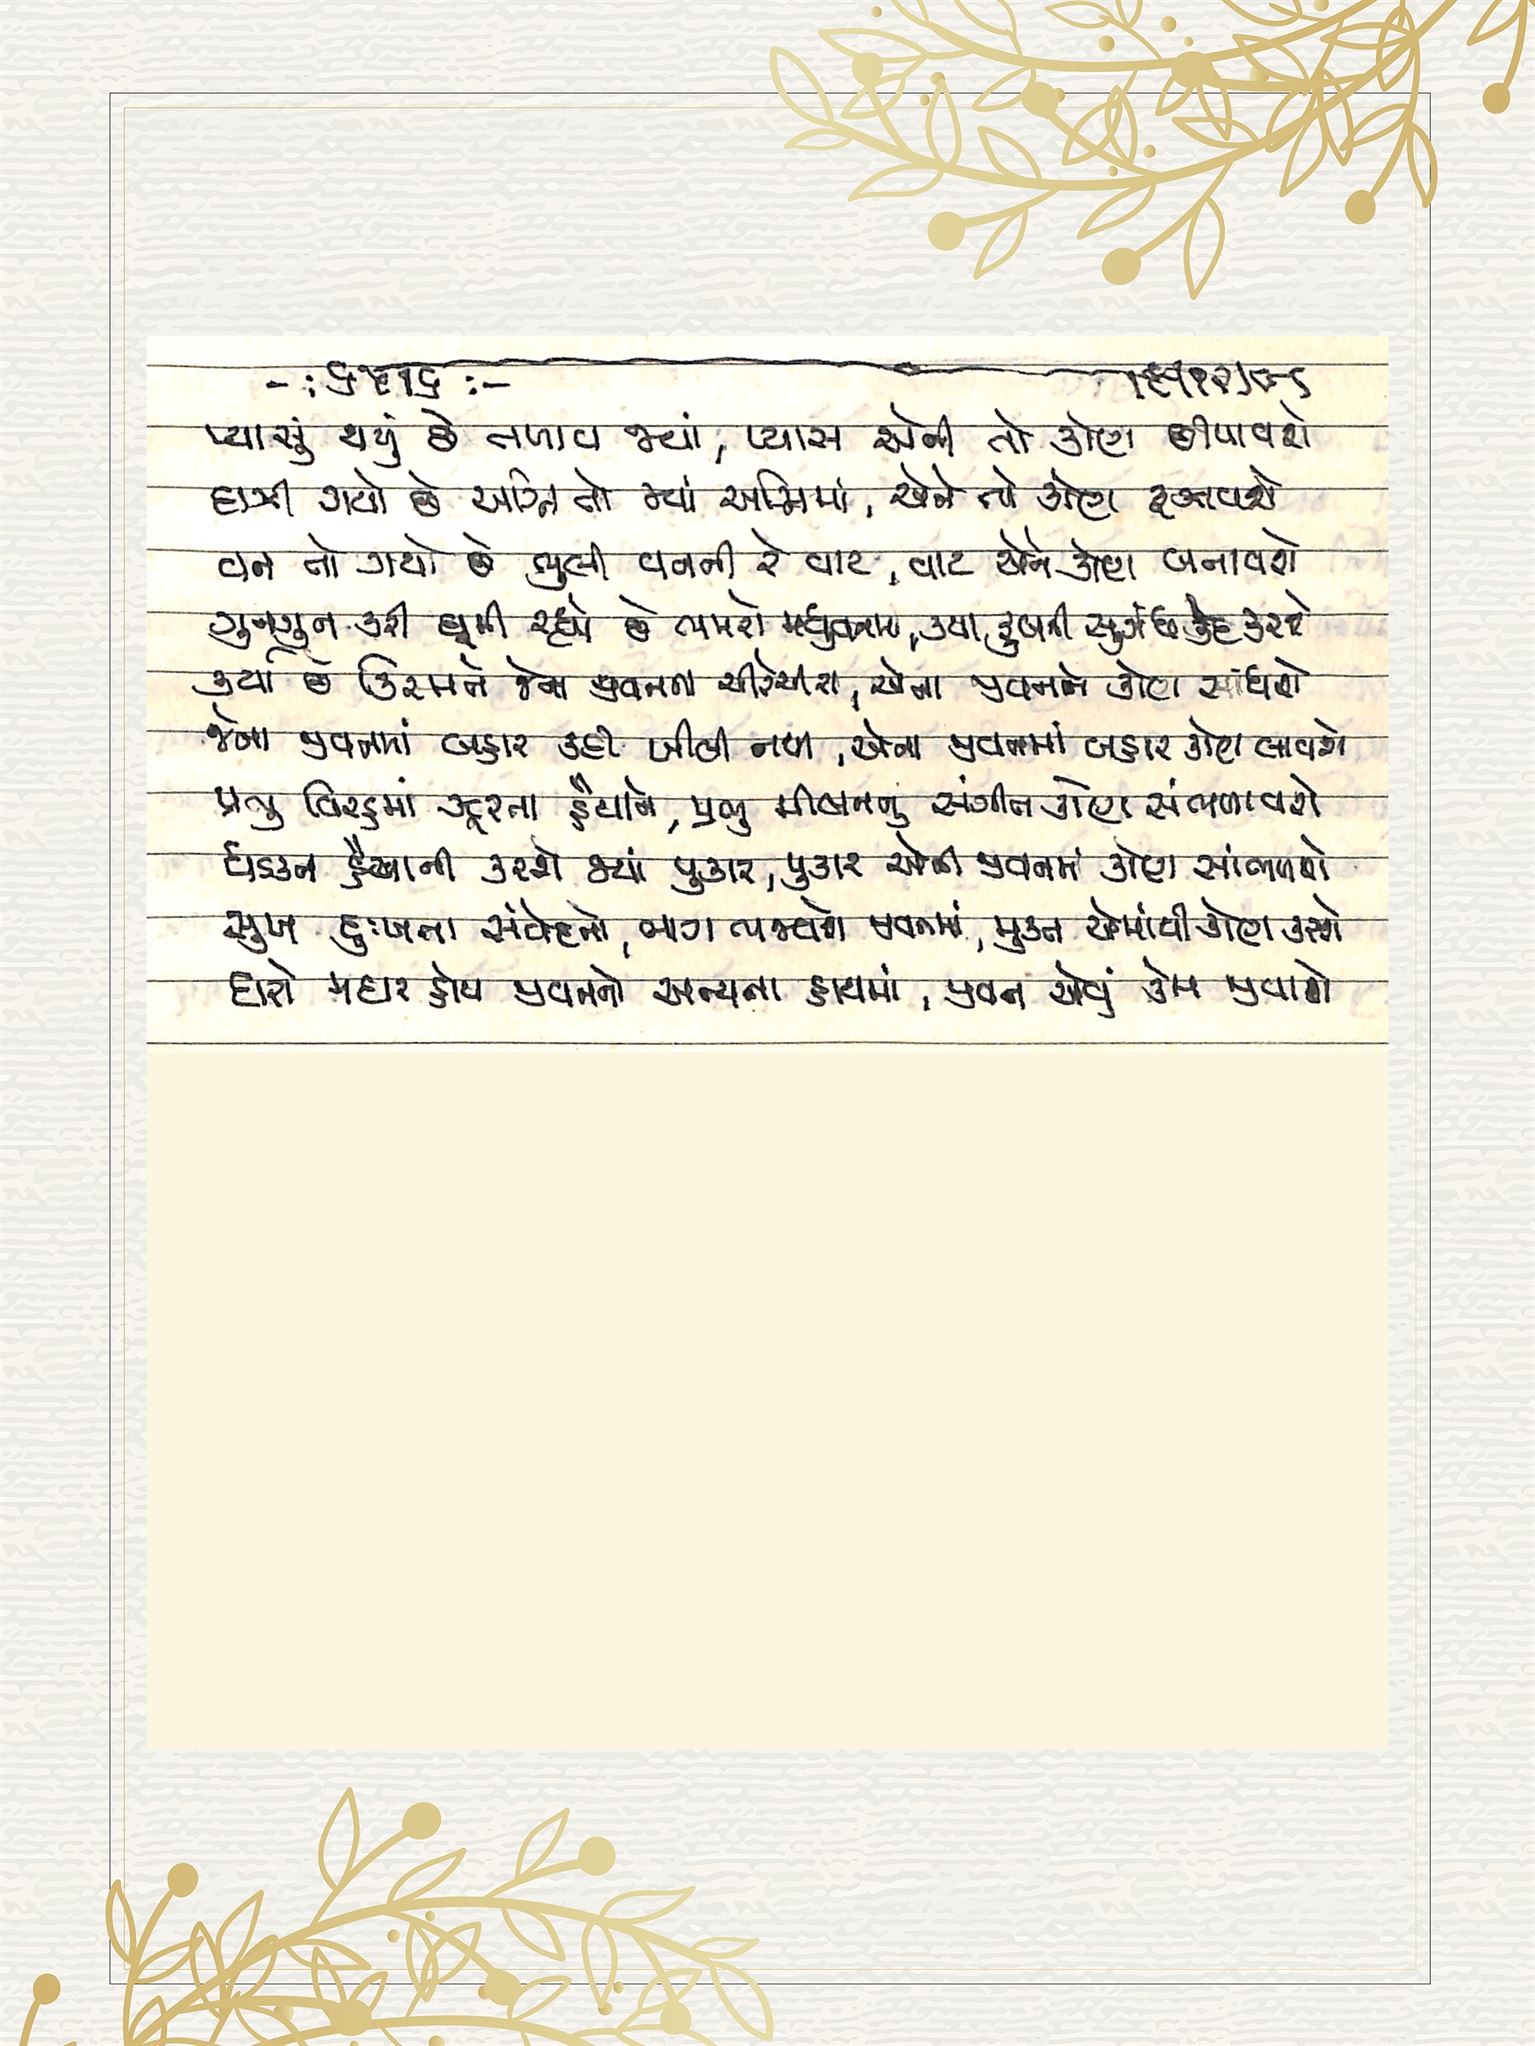 પ્યાસું થયું છે તળાવ જ્યાં, પ્યાસ એની તો કોણ છીપાવશે
દાઝી ગયો છે અગ્નિ તો જ્યાં અગ્નિમાં, એને તો કોણ રૂઝાવશે
વન તો ગયો છે ભુલી વનની રે વાટ, વાટ એને કોણ બનાવશે
ગુનગુન કરી ઘૂમી રહ્યો છે ભમરો મધુવનમાં, કયા ફુલની સુગંધ કેદ કરશે
કર્યા છે કિસ્મતે જેના જીવનના ચીરેચીરા, એના જીવનને કોણ સાંધશે
જેના જીવનમાં બહાર કદી ખીલી નથી, એના જીવનમાં બહાર કોણ લાવશે
પ્રભુ વિરહમાં ઝૂરતા હૈયાને, પ્રભુ મીલનનું સંગીત કોણ સંભળાવશે
ધડકન હૈયાની કરશે જ્યાં પુકાર, પુકાર એની જીવનમાં કોણ સાંભળશે
સુખ દુઃખના સંવેદનો, ભાગ ભજવશે જીવનમાં, મુક્ત એમાંથી કોણ કરશે
દારો મદાર હોય જીવનનો અન્યના હાથમાં, જીવન એવું કેમ જીવાશે